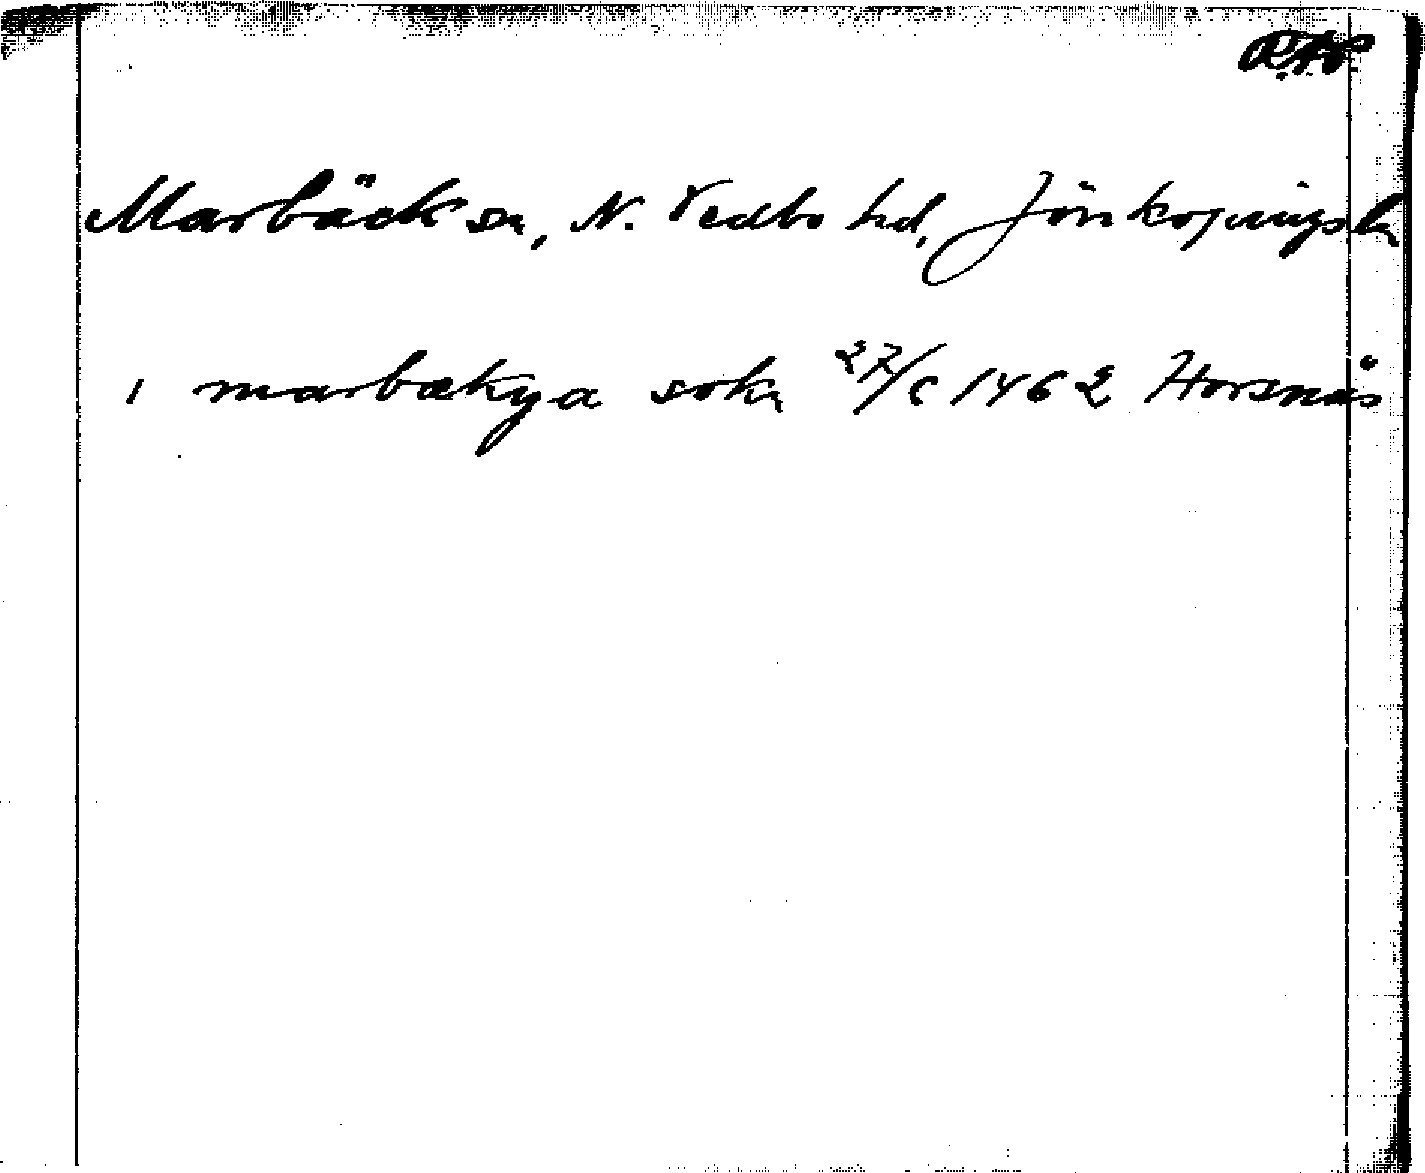 RAP
Marbäck sn, N. Vedbo hd, Jönköpings ln
i marbækya sokn 27/6 1462 Horsnäs